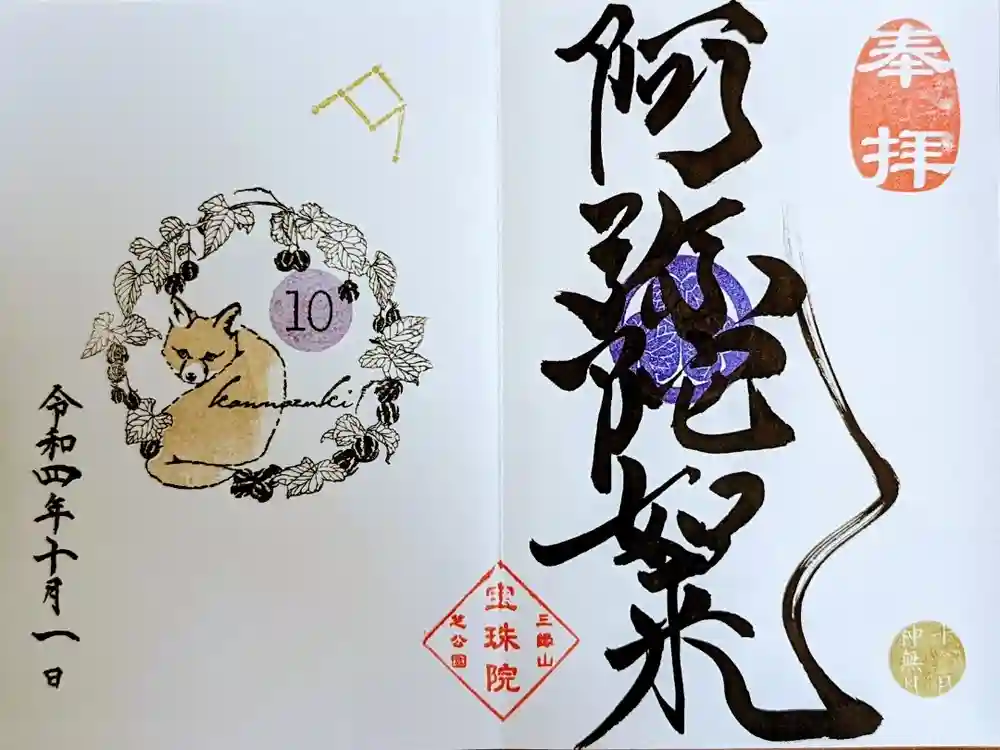 奉拝
阿弥陀如来
十月
神無月
三縁山
宝珠院
芝公園
10
kannazuki
令和四年十月一日